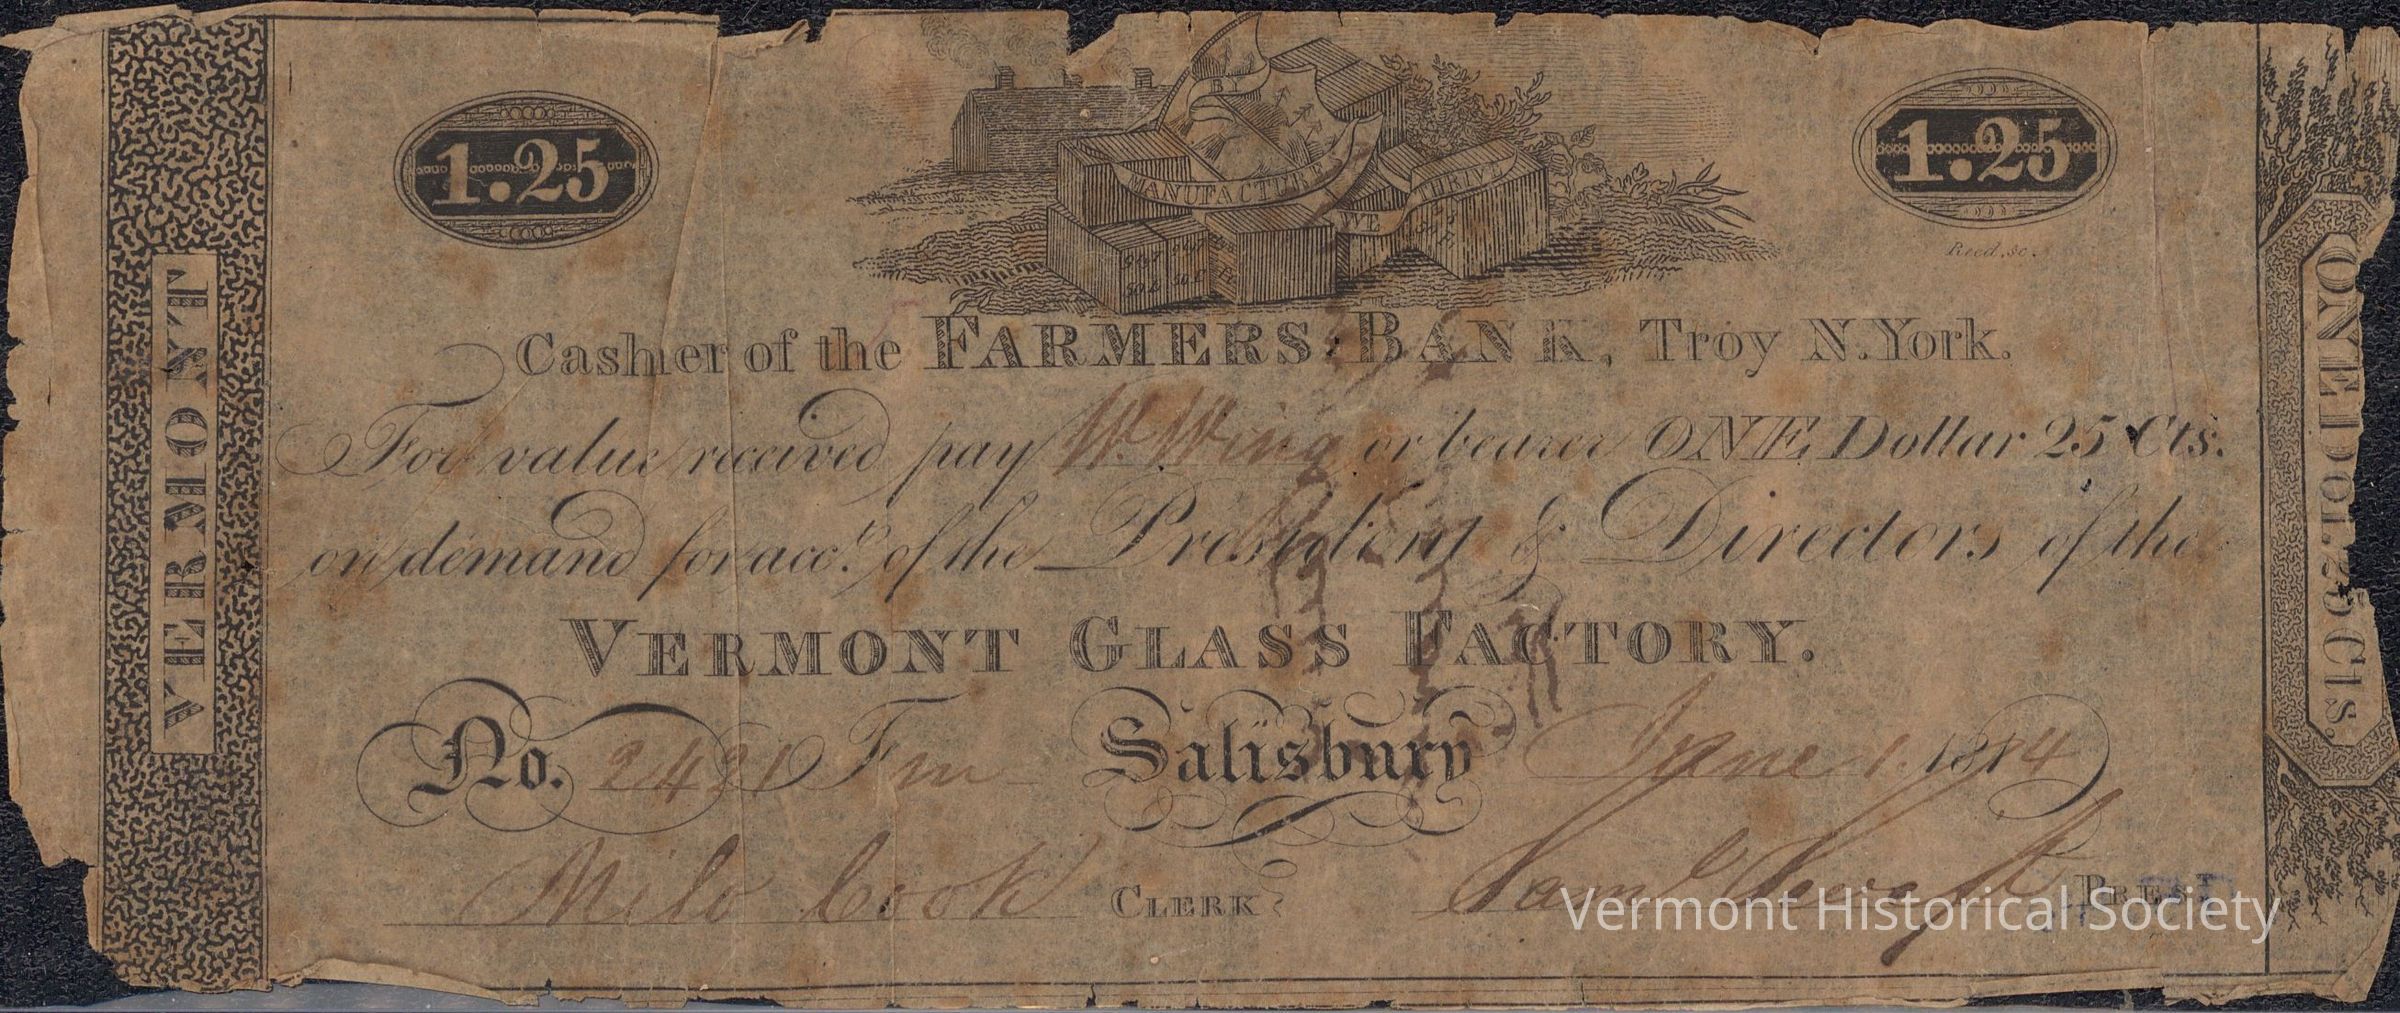 VERMONT
1.25
BY
MANUFACTURES
WE
THRIVE
1.25
Reed. sc.
Cashier of the FARMERS BANK, Troy N. York.
For value received pay W. Wing or bearer ONE Dollar 25 Cts.
on demand for acct. of the President & Directors of the
VERMONT GLASS FACTORY.
No. 2421 Fm Salisbury June 1. 1814
Milo Cook CLERK Saml. Swift PREST.
ONE DOL. 25 Cts.
Vermont Historical Society